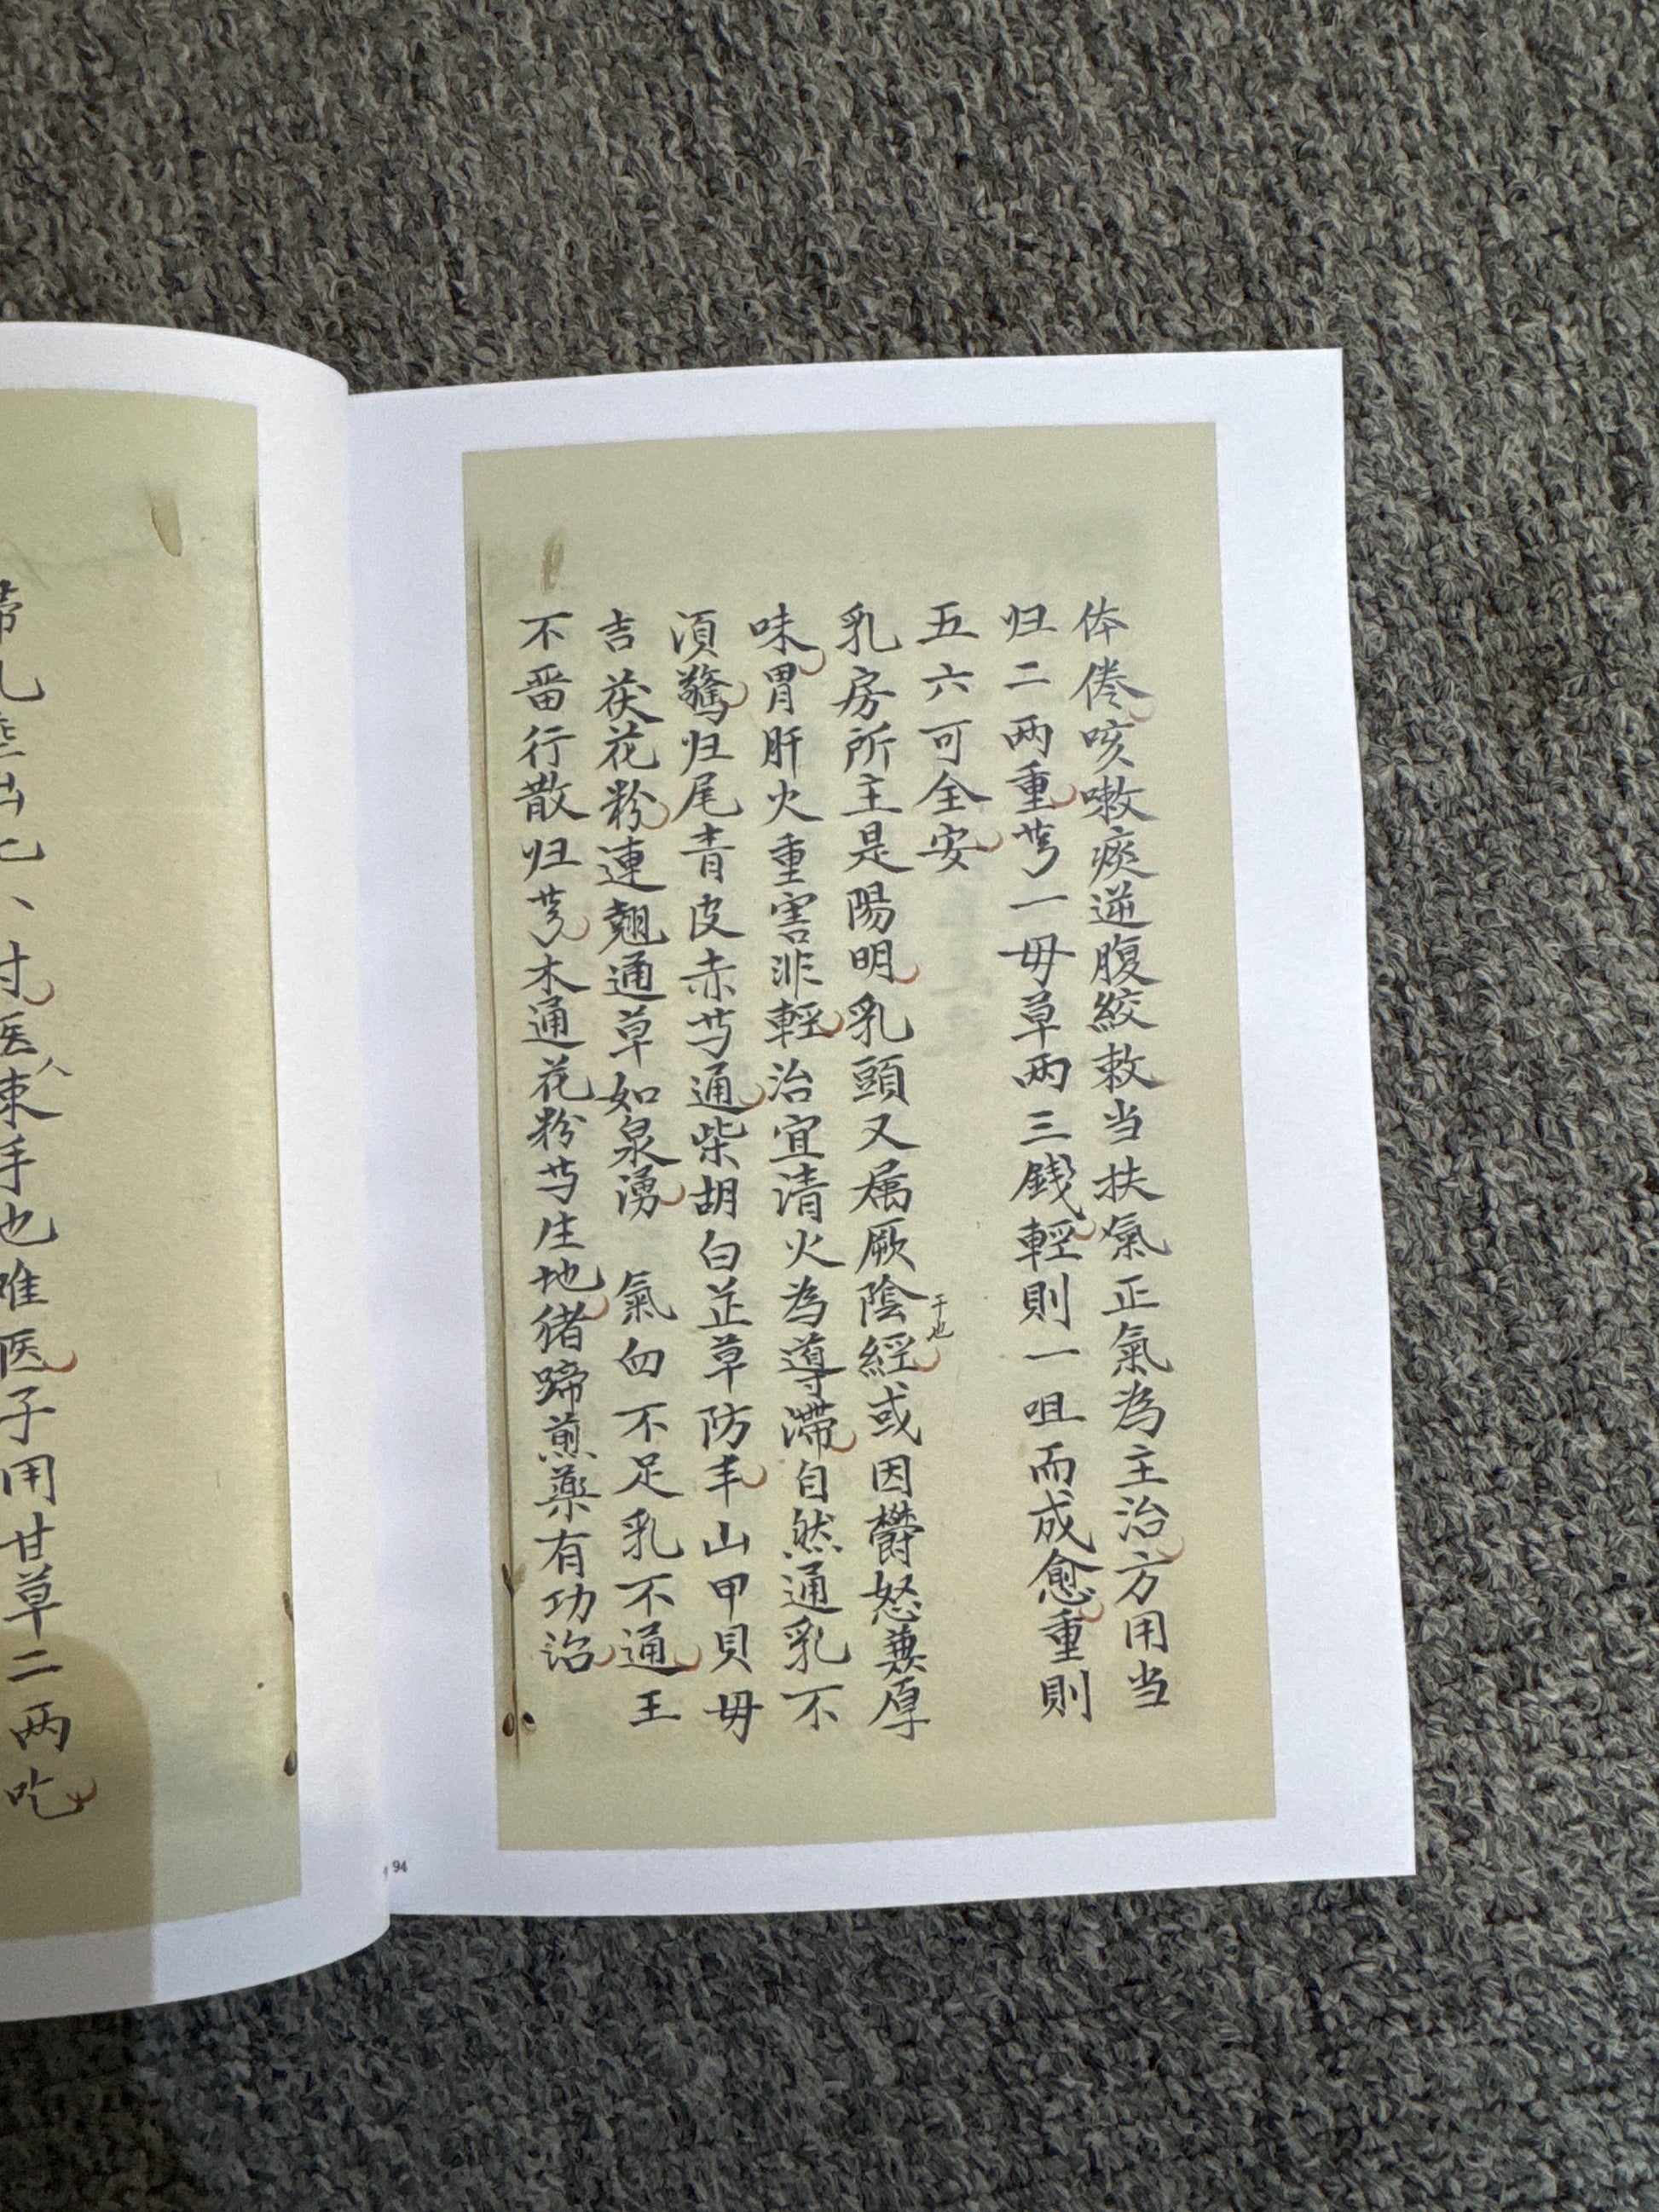 体倦咳嗽痰逆腹絞救当扶氣正氣為主治方用当
归二两重芎一毋草两三錢輕則一咀而成愈重則
五六可全安
乳房所主是陽明乳頭又属厥陰經或因欝怒兼厚
干也
味胃肝火重害非輕治宜清火為導滯自然通乳不
須驚归尾青皮赤芍通柴胡白芷草防丰山甲貝毋
吉茯花粉連翹通草如泉湧 氣血不足乳不通王
不畱行散归芎木通花粉芍生地猪蹄煎藥有功
乳出七、寸医束手也难医子用甘草二两吃
人
94